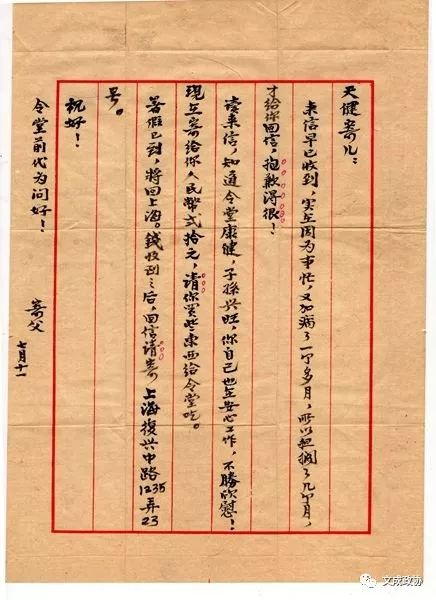 天健寄儿：
来信早已收到，实在因为事忙，又加病了一个多月，所以担搁了几个月，
才给你回信，抱歉得很！
读来信，知道令堂康健，子孫兴旺，你自己也在安心工作，不勝欣慰！
现在寄给你人民幣弍拾元，请你买些东西给令堂吃。
暑假已到，将回上海。錢收到之后，回信请寄 上海復兴中路1235弄23
号。
祝好！
令堂前代为问好！
寄父
七月十一
文成政协